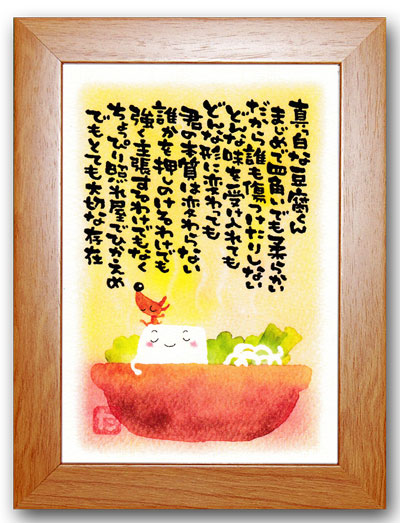 真っ白な豆腐くん
まじめで四角いでも柔らかい
だから誰も傷つけたりしない
どんな味を受け入れても
どんな形に変わっても
君の本質は変わらない
誰かを押しのけるわけでも
強く主張するわけでもなく
ちょっぴり照れ屋でひかえめ
でもとても大切な存在